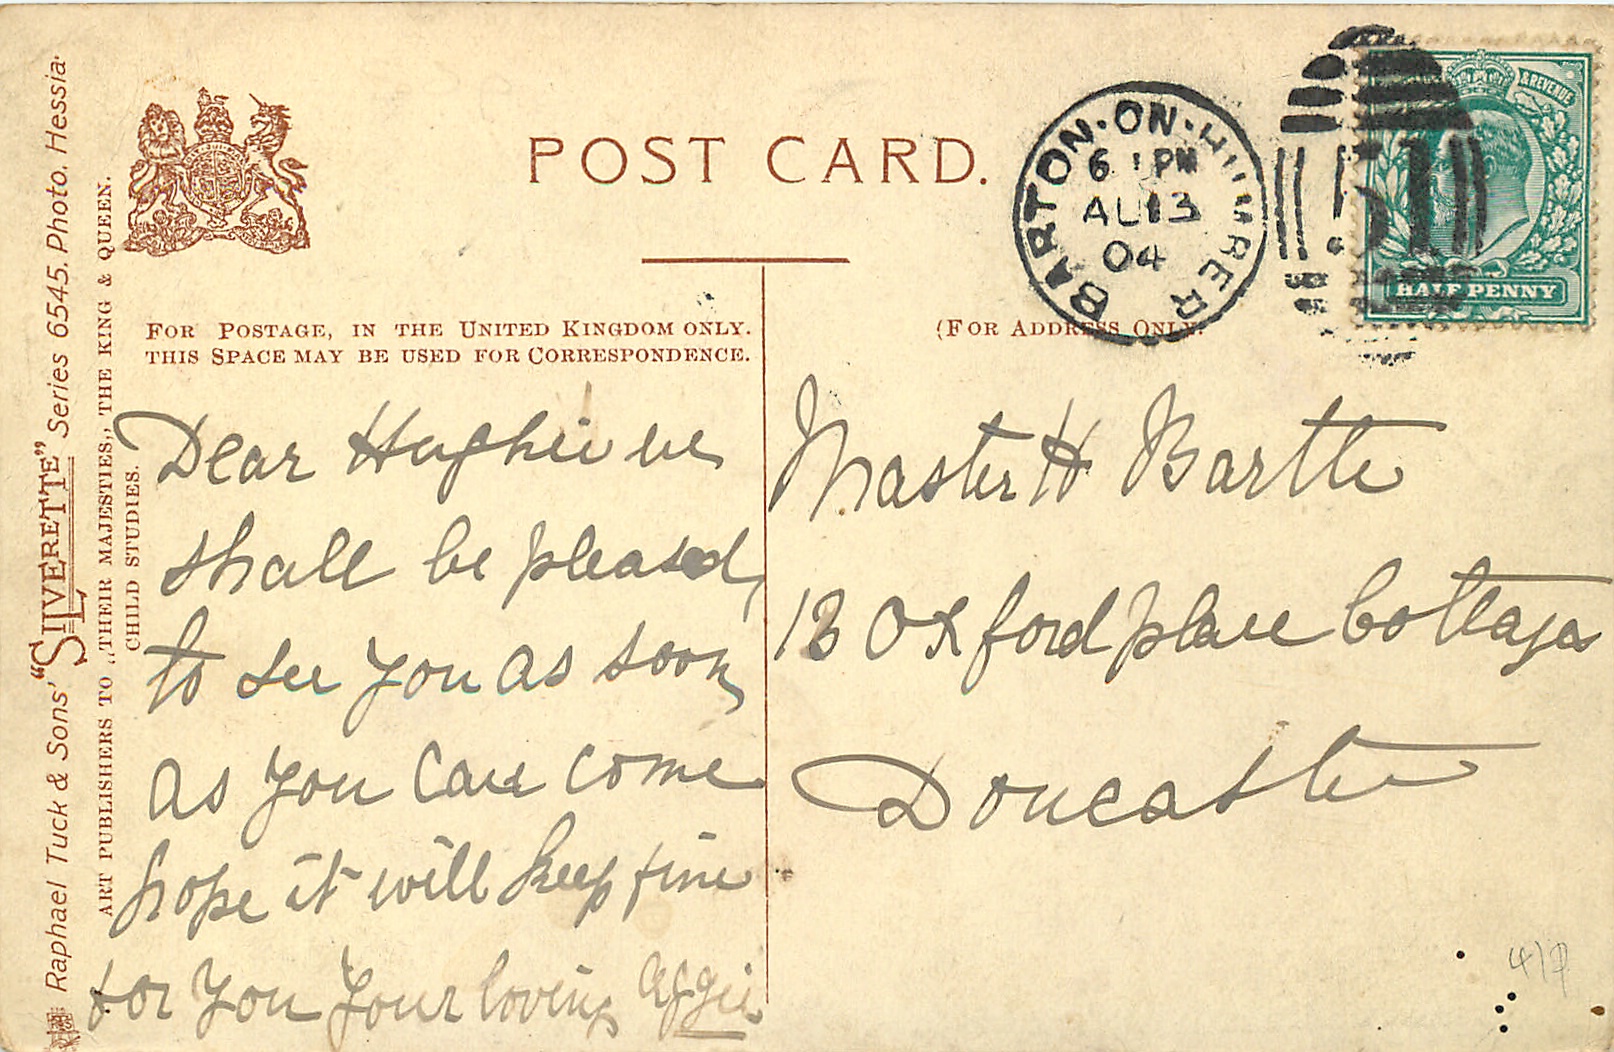 Raphael Tuck & Sons' "SILVERETTE" Series 6545. Photo. Hessia.
ART PUBLISHERS TO „THEIR MAJESTIES„ THE KING & QUEEN.
CHILD STUDIES.
POST CARD.
FOR POSTAGE, IN THE UNITED KINGDOM ONLY.
THIS SPACE MAY BE USED FOR CORRESPONDENCE.
(FOR ADDRESS ONLY.
BARTON-ON-HUMBER
6 PM
AU 13
04
& REVENUE
HALF PENNY
51
Dear Hughie we
shall be pleased
to see you as soon
as you can come
hope it will keep fine
for you your loving Aggie
Master H Bartle
13 Oxford place Cottages
Doncaster